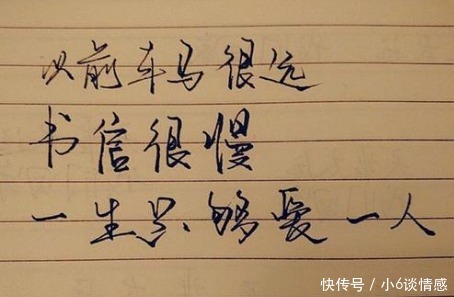 以前车马很远
书信很慢
一生只够爱一人
快传号 / 小6谈情感